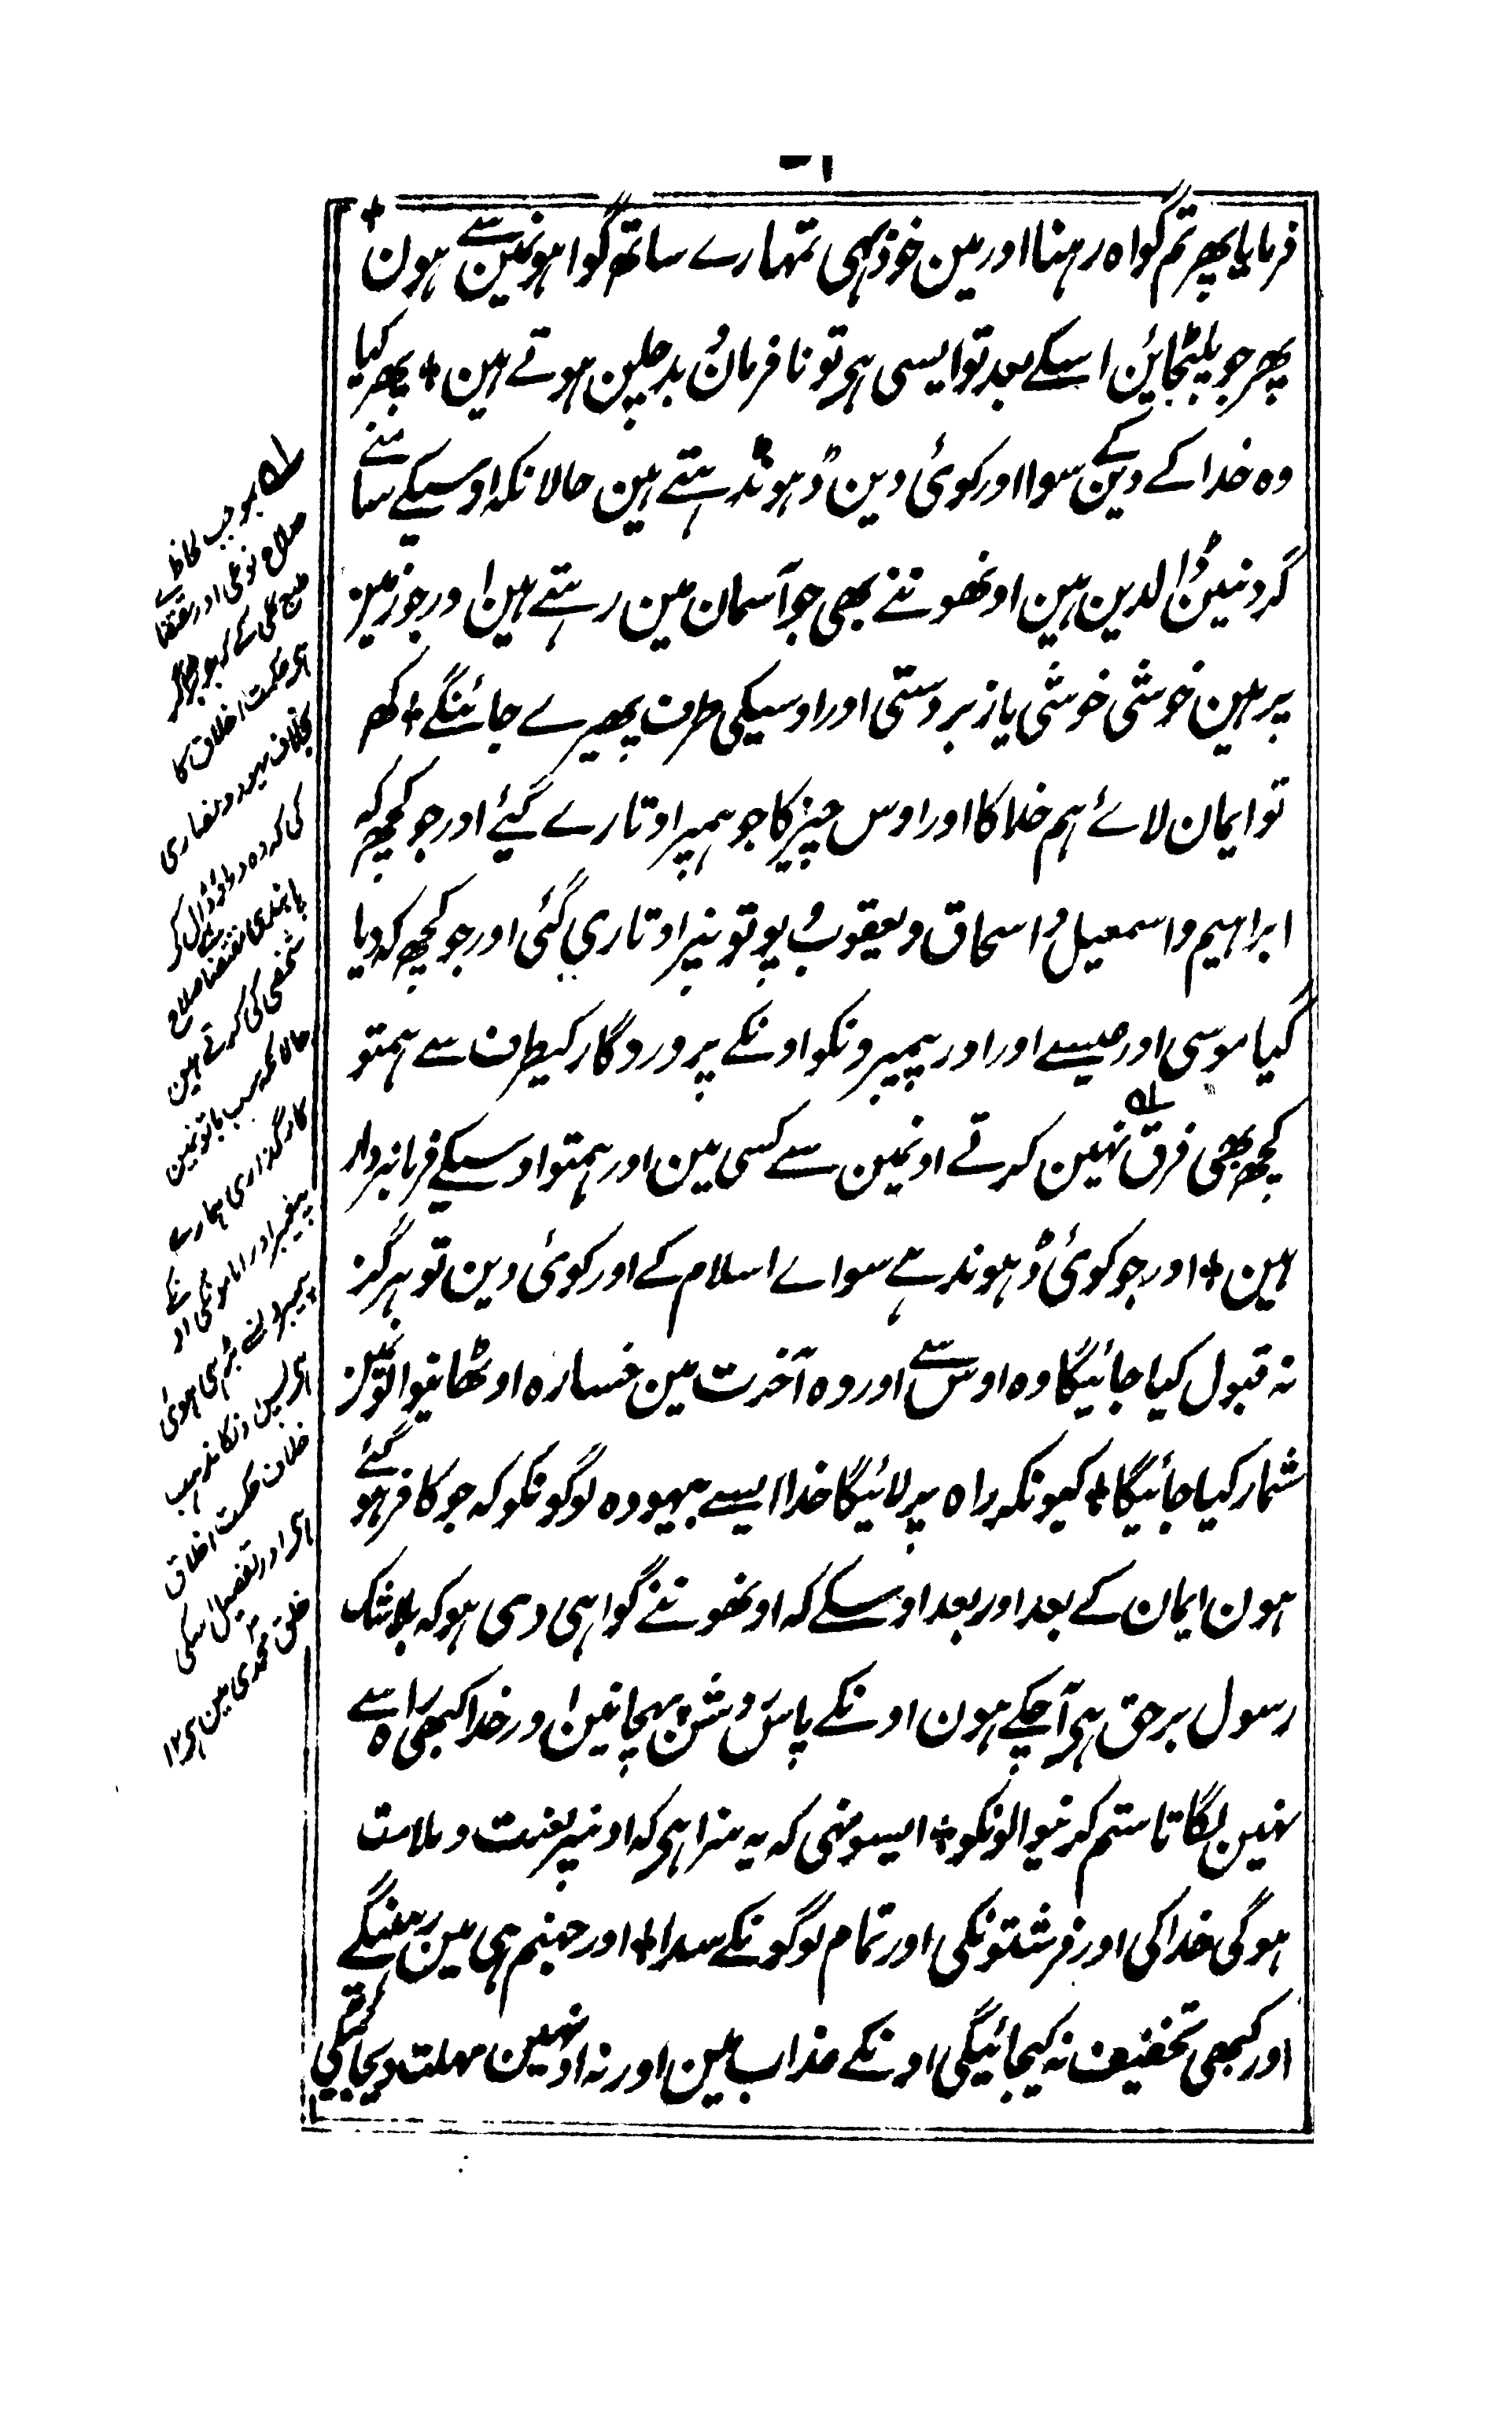 فرمایا پھر تم گواہ رہنا اور مین خود بھی تمہارے ساتھ گواہونمین سے ہون +
پھر جو پلٹجائین اسکے بعد تو ایسی ہی تو نافرمان و بدچلن ہوتے ہین + پھر کیا
وہ خدا کے دین کے سوا اور کوئی دین ڈہونڈہتے ہین حالانکہ اوسیکے سامنے
گردنین ڈالدین ہین اونھوننے بھی جو آسمان مین رہتے ہین اور جو زمین
پر ہین خوشی خوشی یا زبردستی اور اوسیکی طرف پھیرے جائنگے + کھ
تو ایمان لائے ہم خدا کا اور اوس چیز کا جو ہمپر اوتارے گیئے اور جو کچھ کہ
ابراہیم و اسمعیل و اسحاق و یعقوب و پوتونپر اوتاری گئی اور جو کچھ کہ دیا
گیا موسی اور عیسے اور اور پیمبرونکو اونکے پروردگار کیطرف سے ہمتو
کچھ بھی فرق نہین کرتے اونمین سے کسی مین اور ہمتو اوسیکے فرمانبردار
ہین + اور جو کوئی ڈہونڈہے سواے اسلام کے اور کوئی دین تو ہرگز
نہ قبول کیا جائیگا وہ اوس سے اور وہ آخرت مین خسارہ اوٹھانیوالونمین
شمار کیا جائیگا + کیونکہ راہ پر لائیگا خدا ایسے بیہودہ لوگونکو کہ جو کافر ہو گئے
ہون ایمان کے بعد اور بعد اوسکے کہ اونھوننے گواہی دی ہو کہ بلا شک
رسول برحق ہی آچکے ہون اونکے پاس روشن پہچانین اور خدا کبھی راہ سے
نہین لگاتا ستم کرنیوالونکو + ایسونہی کہ یہ سزا ہی کہ اونپر لعنت و ملامت
ہوگی خدا کی اور فرشتونکی اور تمام لوگونکے سدا + اور جہنم ہی مین رہینگے
اور کبھی تخفیف نہ کیجائیگی اونکے عذاب مین اور نہ اونہین مہلت دیجائیگی
بموجب لحاظ
صلاح نوعی اور مقتضا
حکمت اخلاق کا
بخلاف یہود و نصاری
پابندی مقتضا صلاح
شخصی کی کرتے ہین
حالانکہ سب باتونمین
کارگذاری ہمارے
پیغمبر اور امامونکی اور
پیمبرونسے بڑہی ہوئی
ہی پس انکا مذہب
خلاف حکمت اخلاق
ہی اور تفصیل اسکی
خلق محمدی مین ہی ۱۲